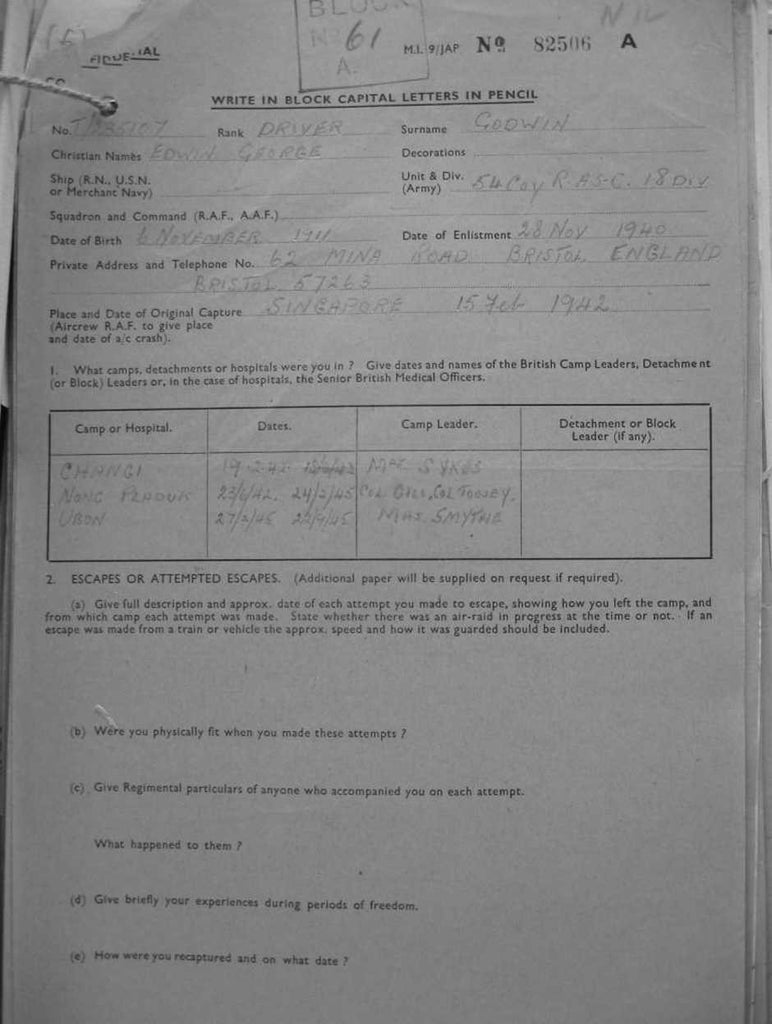 BLOCK
Nº 61
A.
NIL
M.I. 9/JAP Nº 82506 A
WRITE IN BLOCK CAPITAL LETTERS IN PENCIL
No. Rank DRIVER Surname GODWIN
Christian Names EDWIN GEORGE Decorations
Ship (R.N., U.S.N. or Merchant Navy)
Unit & Div. (Army) 54 Coy R.A.S.C. 18 DIV
Squadron and Command (R.A.F., A.A.F.)
Date of Birth 6 NOVEMBER 1911 Date of Enlistment 28 NOV 1940
Private Address and Telephone No. 62 MINA ROAD BRISTOL ENGLAND
BRISTOL 57263
Place and Date of Original Capture SINGAPORE 15 Feb 1942
(Aircrew R.A.F. to give place
and date of a/c crash).
1. What camps, detachments or hospitals were you in ? Give dates and names of the British Camp Leaders, Detachment
(or Block) Leaders or, in the case of hospitals, the Senior British Medical Officers.
Camp or Hospital. Dates. Camp Leader. Detachment or Block
Leader (if any).
CHANGI 19-2-42 SYKES
NONG PLADUK 23/6/42. 24/2/45 COL TOOSEY.
UBON 27/2/45 SMYTHE
2. ESCAPES OR ATTEMPTED ESCAPES. (Additional paper will be supplied on request if required).
(a) Give full description and approx. date of each attempt you made to escape, showing how you left the camp, and
from which camp each attempt was made. State whether there was an air-raid in progress at the time or not. If an
escape was made from a train or vehicle the approx. speed and how it was guarded should be included.
(b) Were you physically fit when you made these attempts ?
(c) Give Regimental particulars of anyone who accompanied you on each attempt.
What happened to them ?
(d) Give briefly your experiences during periods of freedom.
(e) How were you recaptured and on what date ?